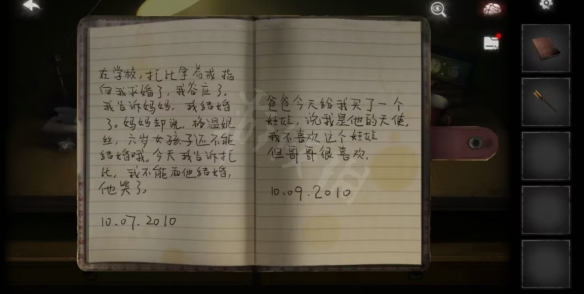 在学校,托比拿着戒指
向我求婚了,我答应了。
我告诉妈妈,我结婚
了。妈妈却说,格温妮
丝,六岁女孩子还不能
结婚哦。今天我告诉托
比,我不能和他结婚,
他哭了。
10.07.2010
爸爸今天给我买了一个
娃娃,说我是他的天使。
我不喜欢这个娃娃
但哥哥很喜欢。
10.09.2010